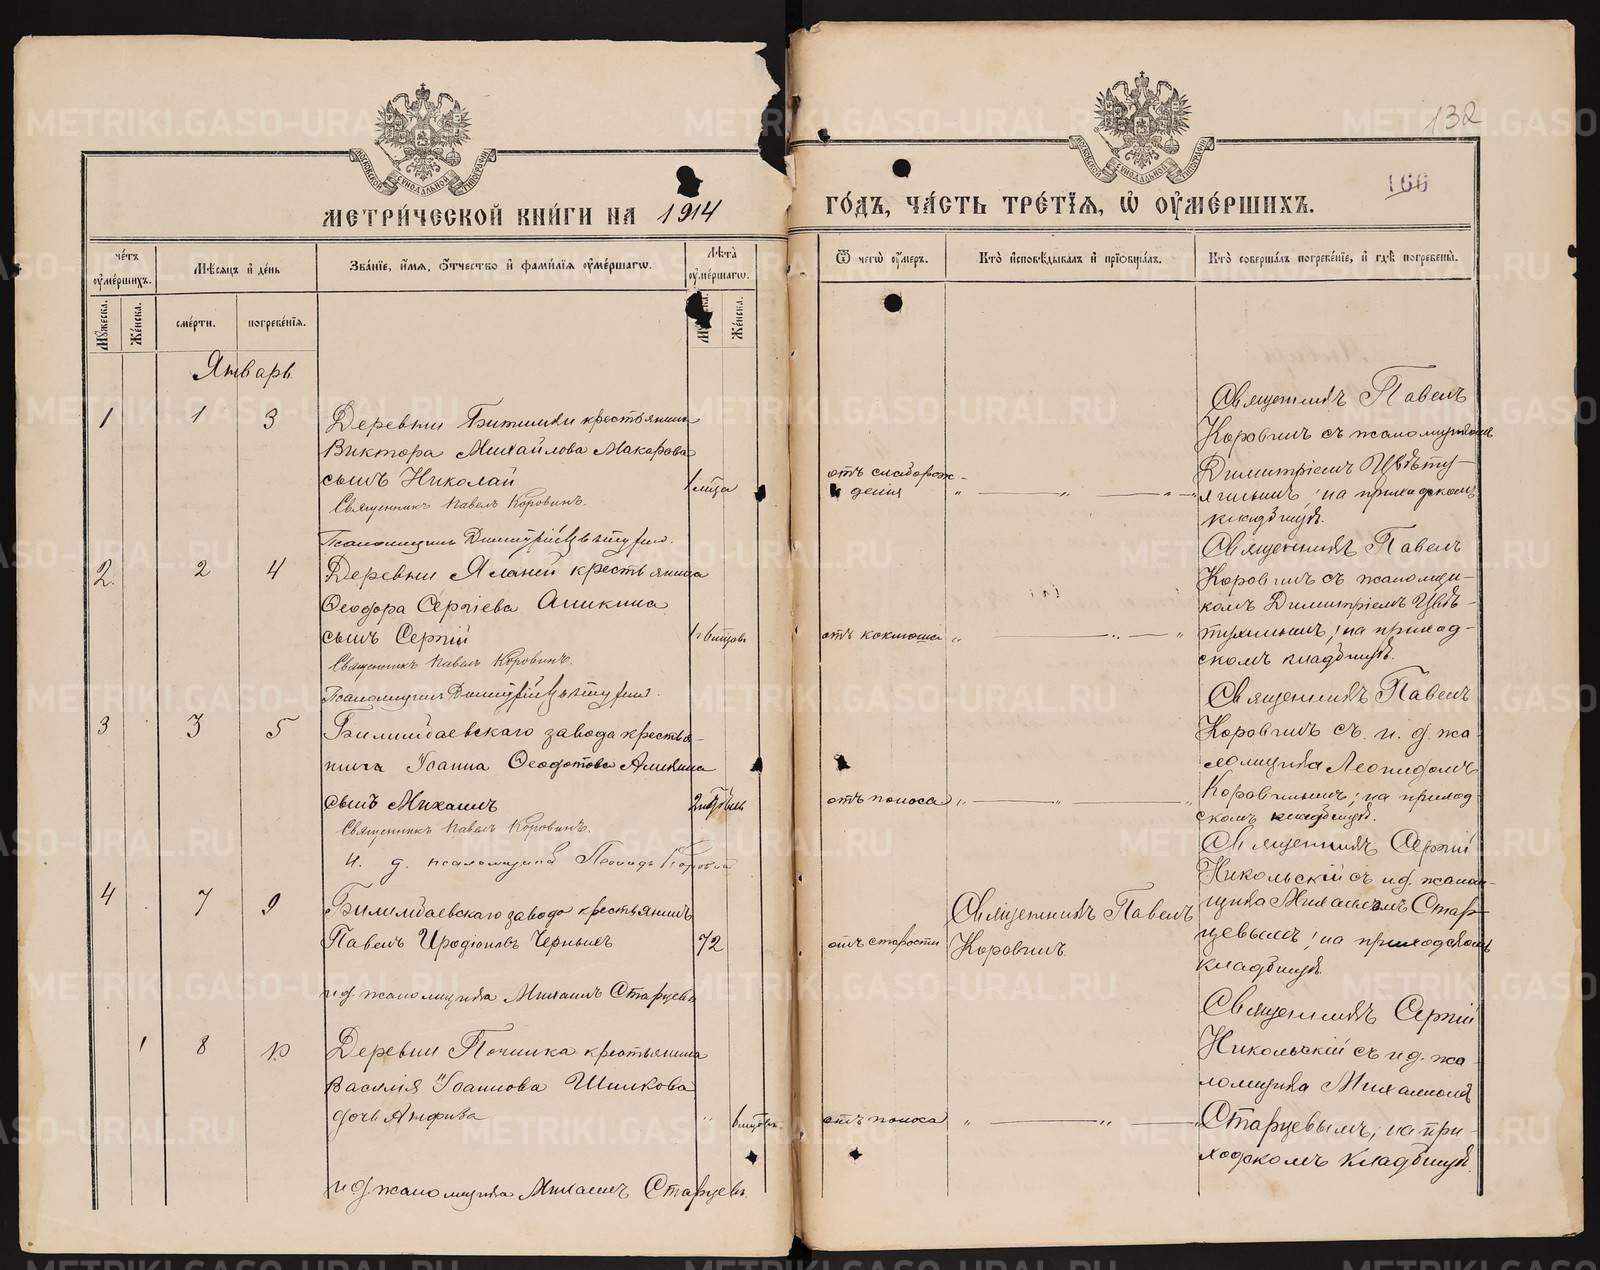 132
166
МЕТРИ́ЧЕСКОЙ КНИ́ГИ НА 1914 ГО́ДЪ, ЧА́СТЬ ТРЕ́ТЇѦ, Ѡ ОУМЕ́РШИХЪ.
Че́тъ оумершихъ.
Мѣсяцъ и день
Зва́нїе, и́мѧ, ѻ́тчество и҆ фами́лїѧ оумершагѡ.
Лѣта оумершагѡ.
Ѿ чегѡ̀ оумеръ.
Кто̀ и҆сповѣ́дывалъ и҆ прїобща́лъ.
Кто̀ соверша́лъ погребе́нїе, и҆ гдѣ̀ погребены̀.
Мꙋжеска.
Же́нска.
сме́рти.
погребе́нїѧ.
Же́нска.
Январь
1 1 3
Деревни Битимки крестьянина
Виктора Михайлова Макарова
сынъ Николай
Священникъ Павелъ Коровинъ.
Псаломщикъ Димитрій Цвѣтухинъ.
отъ слаборож-
денія
Священникъ Павелъ
Коровинъ съ псаломщикомъ
Димитріемъ Цвѣту-
хинымъ; на приходскомъ
кладбищѣ.
2. 2 4
Деревни Яланки крестьянина
Ѳеодора Сергіева Аликина
сынъ Сергій
Священникъ Павелъ Коровинъ.
Псаломщикъ Димитрій Цвѣтухинъ.
отъ коклюша
Священникъ Павелъ
Коровинъ съ псаломщи-
комъ Димитріемъ Цвѣ-
тухинымъ; на приход-
скомъ кладбищѣ.
3 3 5
Билимбаевскаго завода крестья-
нина Іоанна Ѳеодотова Аликина
сынъ Михаилъ
Священникъ Павелъ Коровинъ.
и. д. псаломщика Леонидъ Коровинъ
отъ поноса
Священникъ Павелъ
Коровинъ съ и. д. пса-
ломщика Леонидомъ
Коровинымъ; на приход
скомъ кладбищѣ.
4 7 9
Билимбаевскаго завода крестьянинъ
Павелъ Иродіоновъ Черныхъ
72
и д. псаломщика Михаилъ Старцевъ
отъ старости
Священникъ Павелъ
Коровинъ.
Священникъ Сергій
Никольскій съ и д. псалом-
щика Михаиломъ Стар-
цевымъ; на приходскомъ
кладбищѣ.
1 8 10
Деревни Починка крестьянина
Василія Іоаннова Шилкова
дочь Анфиса
6 мѣсяц.
и д. псаломщика Михаилъ Старцевъ
отъ поноса
Священникъ Сергій
Никольскій съ и д. пса-
ломщика Михаиломъ
Старцевымъ; на при-
ходскомъ кладбищѣ.
METRIKI.GASO-URAL.RU